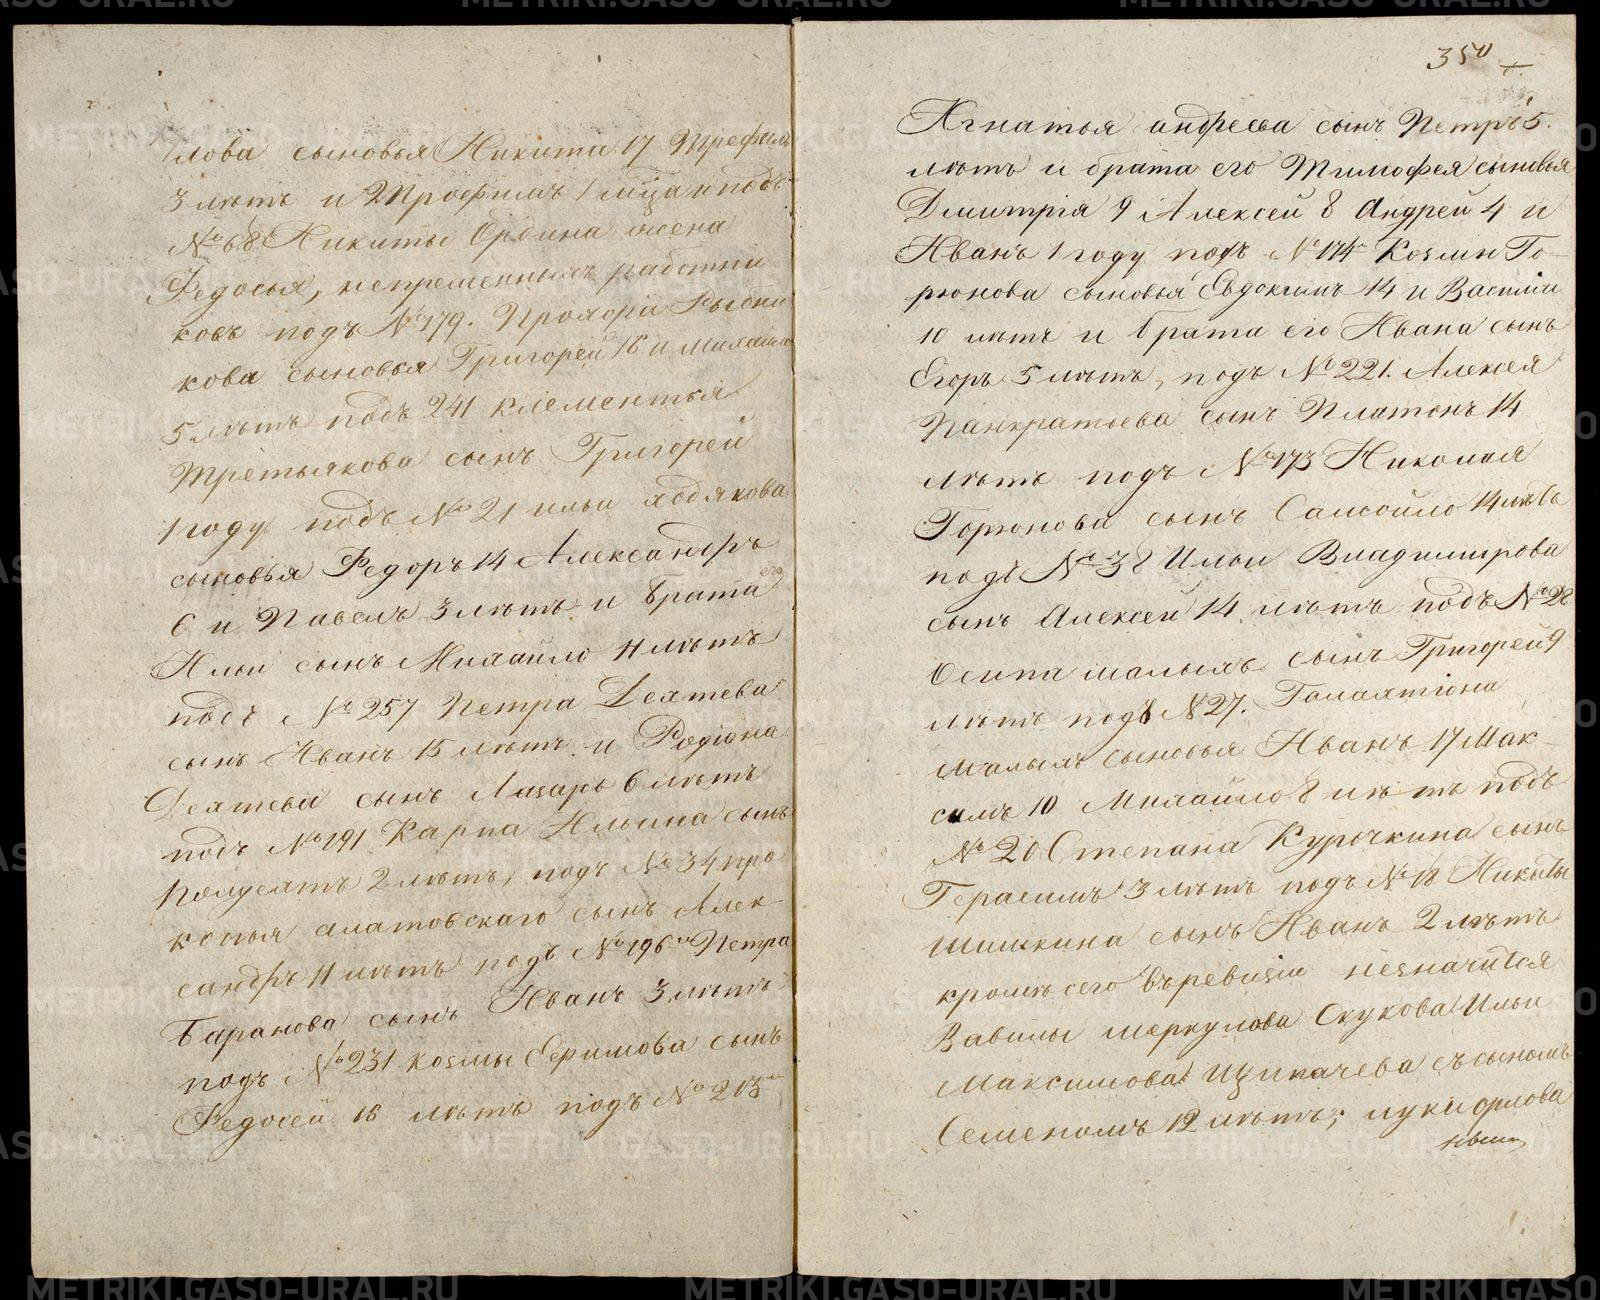 лова сыновья Никита 17 Трефил
3 лѣтъ и Трофимъ 1 мца и подъ
№ 68 Никиты Ордина жена
Федосья, непременныхъ работни
ковъ подъ № 179. Прохора Рыбни
кова сыновья Григорей 16 и Михаило
5 лѣтъ подъ 241 клементья
Третьякова сынъ Григорей
1 году подъ № 21 ильи
сыновья Федоръ 14 Александръ
6 и Павелъ 3 лѣтъ и брата его
Ильи сынъ Михайло 11 лѣтъ
подъ № 257 Петра Деятева
сынъ Иванъ 15 лѣтъ и Родіона
Деятева сынъ Лазарь 6 лѣтъ
подъ № 191 Карпа Ильина сынъ
2 лѣтъ, подъ № 34 про
копья алатовскаго сынъ Алек-
сандръ 11 лѣтъ подъ № 196 Петра
Баранова сынъ Иванъ 3 лѣтъ
подъ № 231 козмы Ефимова сынъ
Федосей 16 лѣтъ подъ № 213
350
Игнатья андреева сынъ Петръ 5.
лѣтъ и брата его Тимофея сыновья
Дмитрія 9 Алексей 8 Андрей 4 и
Иванъ 1 году подъ № 174 Козмы Го-
рюнова сыновья Евдокимъ 14 и Василии
10 лѣтъ и брата его Ивана сынъ
Егоръ 5 лѣтъ, подъ № 221. Алексея
Панкратьева сынъ Платонъ 14
лѣтъ подъ № 173 Николая
Горюнова сынъ Самойло 14 лѣтъ
подъ № 38 Ильи Владимирова
сынъ Алексей 14 лѣтъ подъ № 28
Осипа малыхъ сынъ Григорей 9
лѣтъ подъ № 27. Галахтіона
Малыхъ сыновья Иванъ 17 Мак-
симъ 10 Михайло 8 лѣтъ подъ
№ 20 Степана Курочкина сынъ
Герасимъ 3 лѣтъ подъ № 18 Никиты
Шишкина сынъ Иванъ 2 лѣтъ
кромѣ сего въ ревизіи незначится
Вавилы меркулова Скукова Ильи
Максимова Щипачева съ сыномъ
Семеномъ 12 лѣтъ; луки орлова
METRIKI.GASO-URAL.RU